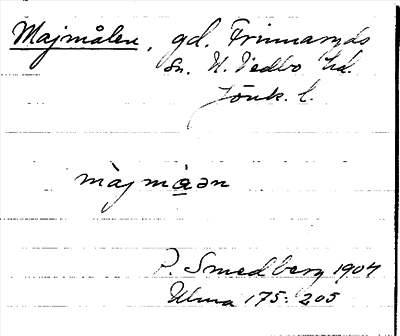 Majmålen, gd. Frinnaryds
sn. N. Vedbo hd.
Jönk. l.
màj mɑ̀ən
P. Smedberg 1904
Ulma 175:205